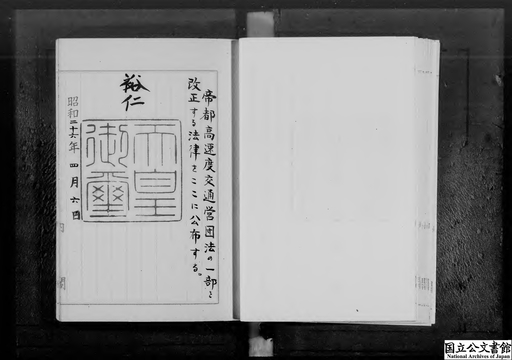 帝都高速度交通営団法の一部を
改正する法律をここに公布する。
裕仁
天皇
御璽
昭和二十六年四月六日
国立公文書館
National Archives of Japan